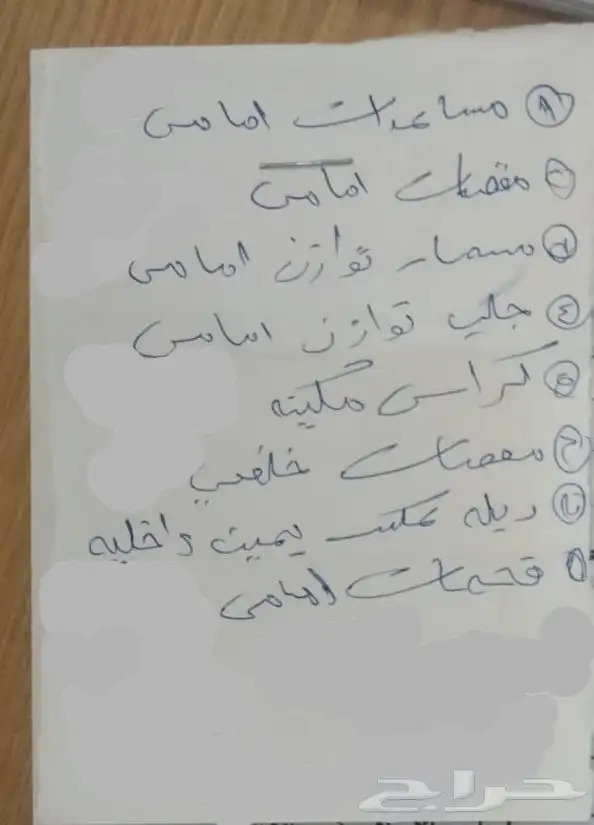 ١ مساعدات امامي
٢ مقصات امامي
٣ مسمار توازن امامي
٤ جلب توازن امامي
٥ كراسي مكينه
٦ مقصات خلفي
٧ ريله عكس يمين داخليه
٨ فحمات امامي
حراج